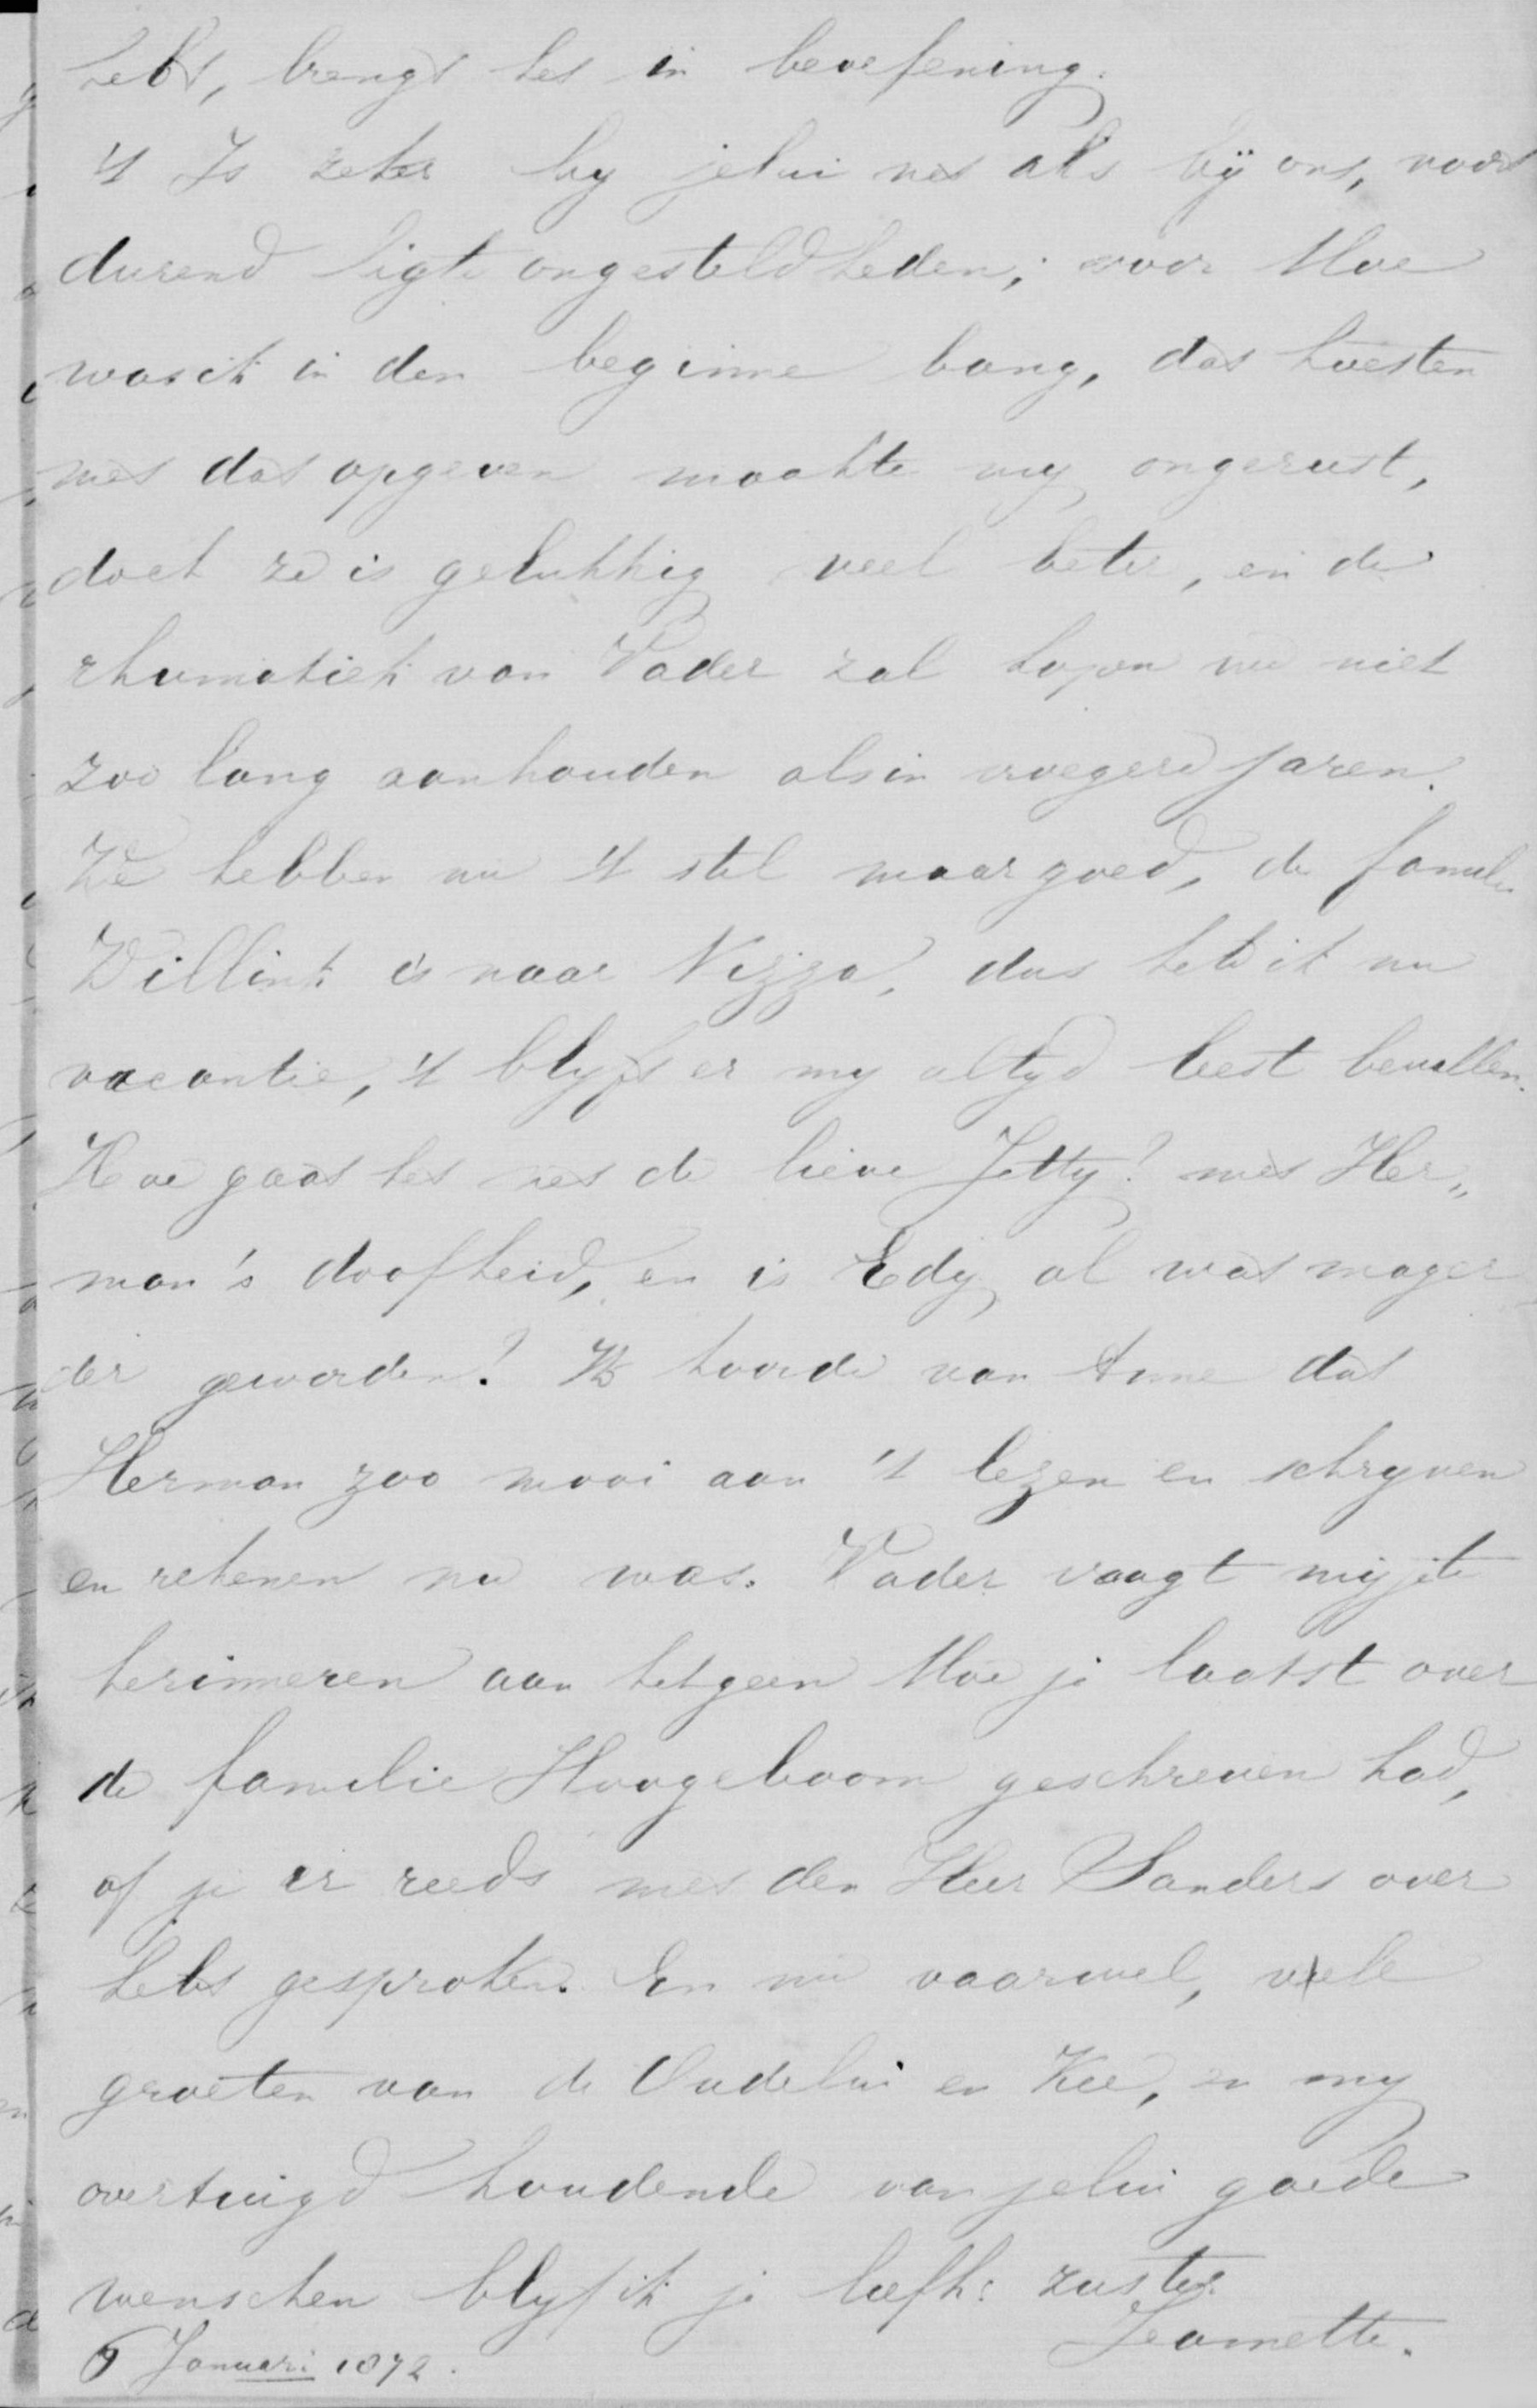 hebt, brengt het in beoefening.
't Is zeker by jelui net als bij ons, voort
durend ligte ongesteldheden; voor Moe
was ik in den beginne bang, dat hoesten
met dat opgeven maakte my ongerust,
doch ze is gelukkig veel beter, en de
rhumatiek van Vader zal hopen we niet
zoo lang aanhouden als in vroegere jaren.
We hebben nu 't stil maar goed, de familie
Willink is naar Nizza, dus heb ik nu
vacantie, 't blyft er my altyd best bevallen.
Hoe gaat het met de lieve Jetty? met Her„
man's doofheid, en is Edy al wat mager
der geworden? Ik hoorde van Anne dat
Herman zoo mooi aan 't lezen en schryven
en rekenen nu was. Vader vraagt mij je te
herinneren aan hetgeen Moe je laatst over
de familie Hoogeboom geschreven had,
of je er reeds met den Heer Sanders over
hebt gesproken. En nu vaarwel, vele
groeten van de Oudelui en Kee, en my
overtuigd houdende van jelui goede
wenschen blyf ik je liefh: zuster
Jeannette.
6 Januari 1872.